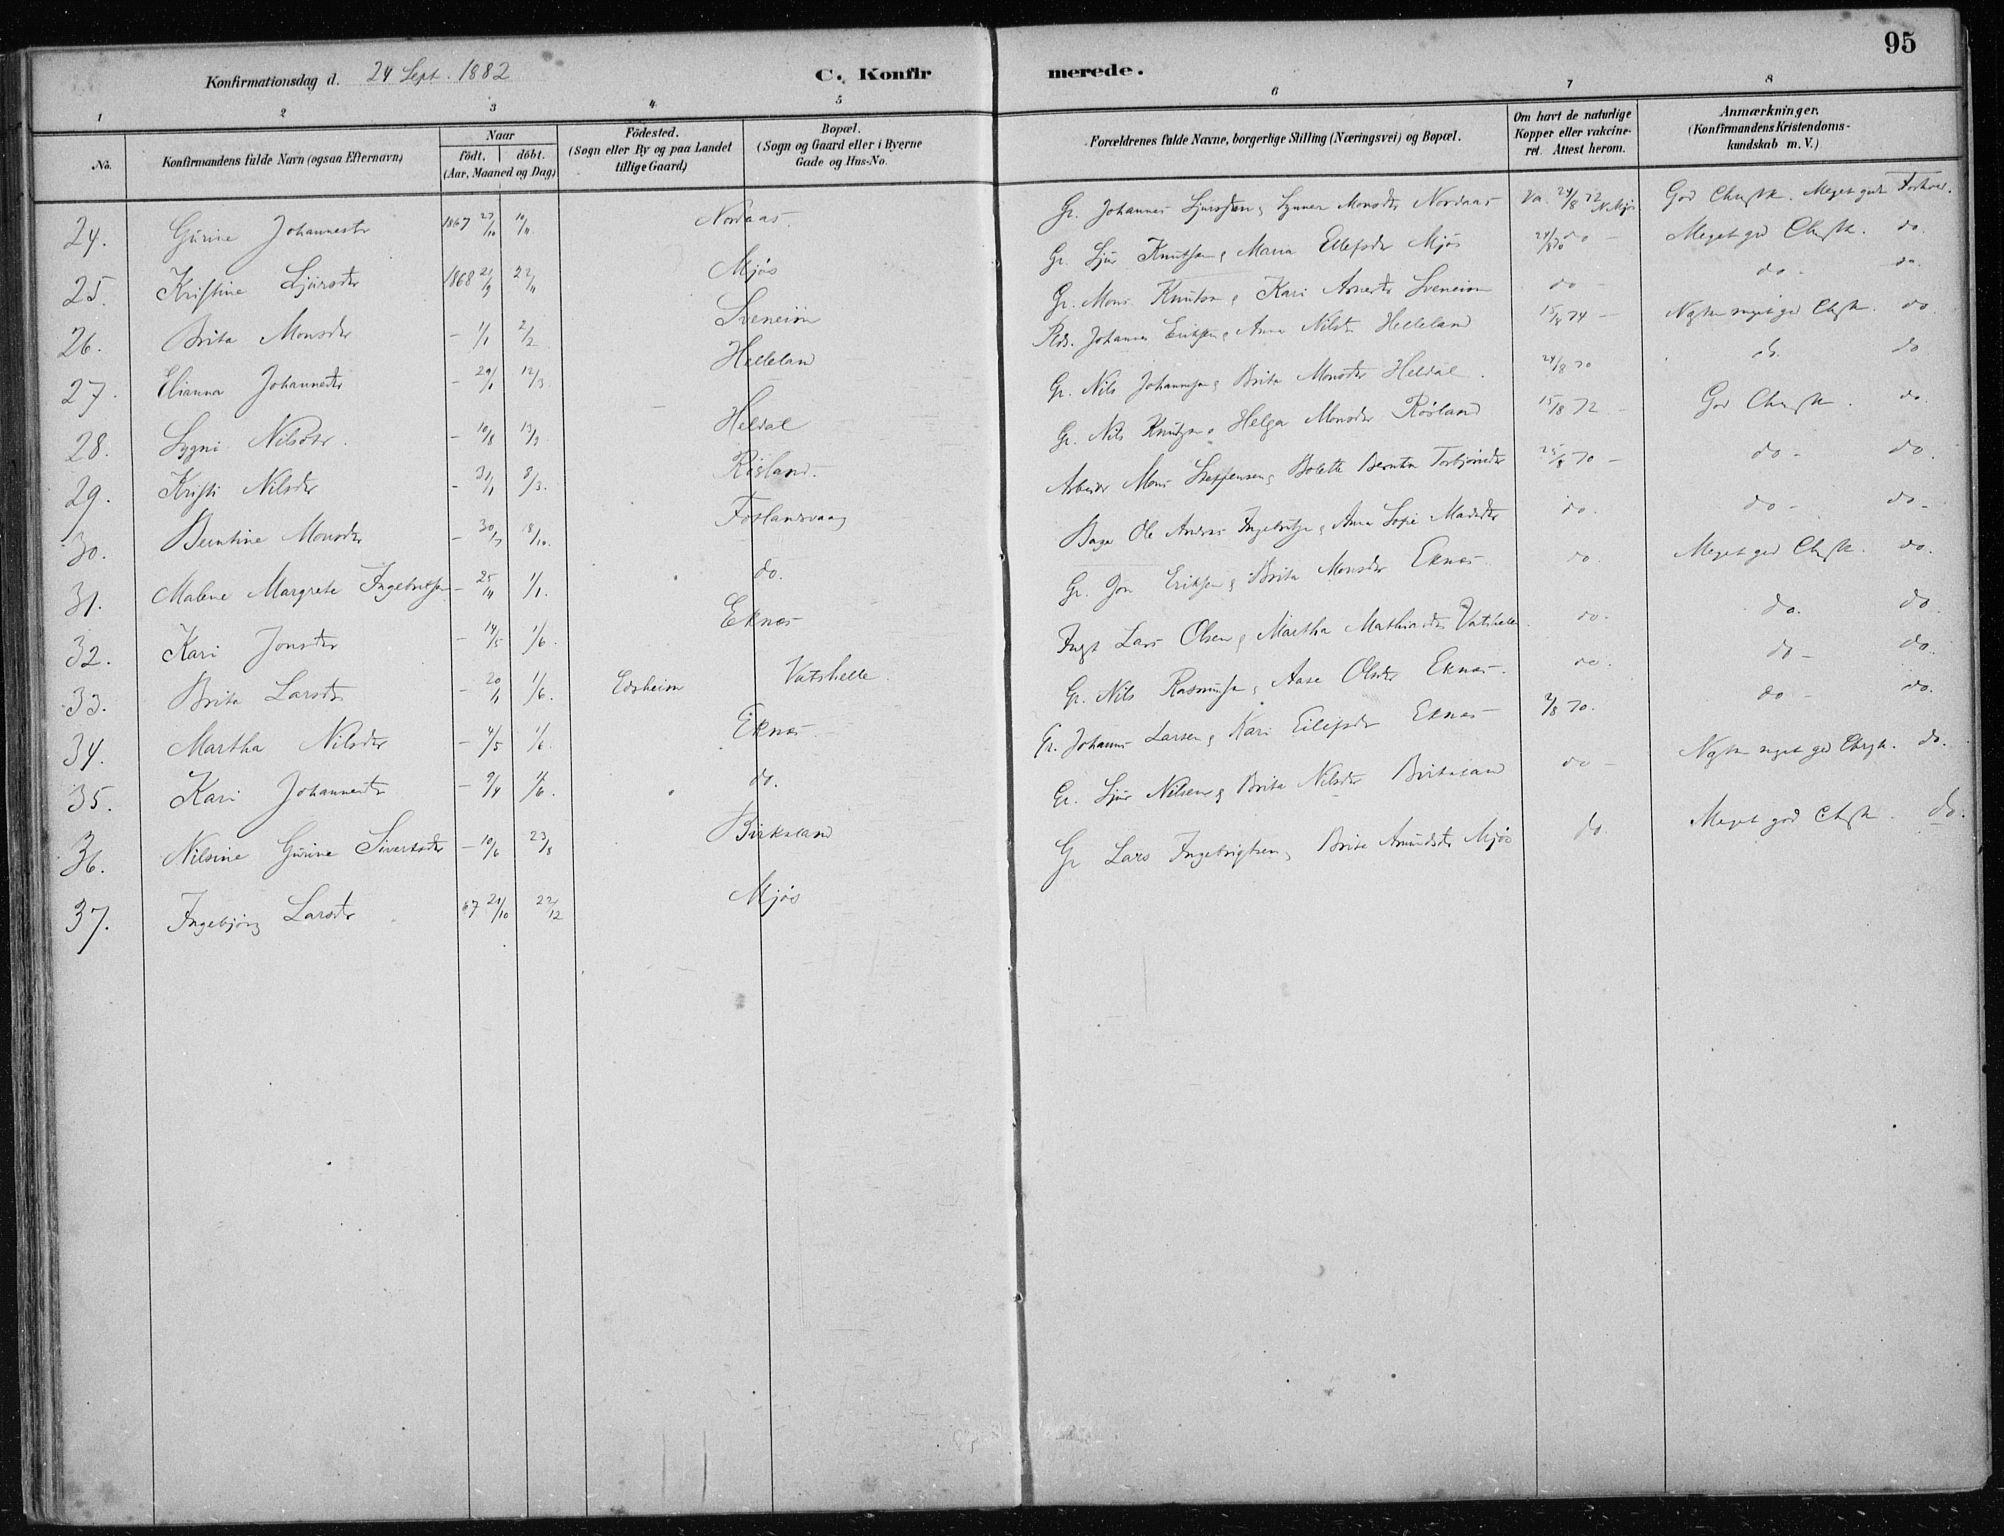 95
Konfirmationsdag d. 24 Sept. 1882 C. Konfirmerede.
1 2 3 4 5 6 7 8
No. Konfirmandens fulde Navn (ogsaa Efternavn) Naar født, døbt. (Aar, Maaned og Dag) Fødested. (Sogn eller By og paa Landet tillige Gaard) Bopæl. (Sogn og Gaard eller i Byerne Gade og Hus-No. Forældrenes fulde Navne, borgerlige Stilling (Næringsvei) og Bopæl. Om havt de naturlige Kopper eller vakcineret. Attest herom. Anmærkninger. (Konfirmandens Kristendomskundskab m. V.)
24. Gurine Johannesdtr 1867 27/10 10/11 Nordaas Gr. Johannes Sjursøn & Synneva Monsdtr Nordaas Va. 24/8 72 N. Mjøs God Chrstk. Meget godt Forhold.
25. Kristine Sjursdtr 1868 21/9 22/11 Mjøs Gr. Sjur Knutsen & Maria Ellefsdtr Mjøs 24/8 70 Meget god Chrstk. do.
26. Brita Monsdtr - 1/1 2/2 Sveneim Gr. Mons Knutsn & Kari Arnesdtr Sveneim do - do - do.
27. Elianna Johannesdtr - 29/1 12/3. Helleland Pds. Johannes Eriksen & Anna Nilsdtr Helleland 15/8 74 - Næsten meget god Chrstk. do
28. Sygni Nilsdtr. - 10/8 13/9. Heldal Gr. Nils Johannesen & Brita Monsdtr Heldal. 24/8 70 do. do
29. Kristi Nilsdtr - 31/1 8/3. Røsland Gr. Nils Knutsen & Helga Monsdtr Røsland 15/8 72 - God Chrstk. do.
30. Berntine Monsdtr - 30/7 18/10. Foslandsvaag Arbeider Mons Steffensen & Bolette Berntin Torbjørnsdtr 25/8 70 - do - do.
31. Malene Margrete Ingebritsen - 25/11 1/1. do. Bager Ole Andreas Ingebritsen & Anna Sofie Madsdtr do. do - do -
32. Kari Jonsdtr - 14/5 1/6. Eknes Gr. Jon Eriksen & Brita Monsdtr Eknes do Meget god Chrstk. do.
33. Brita Larsdtr - 20/1 1/6. Edsheim Vatshelle. Inds Lars Olsen & Martha Mathiasdtr Vatshelle. do. do. do
34. Martha Nilsdtr - 4/5 1/6. Eknes Gr. Nils Rasmussn & Aase Olsdtr Eknes. do. do - do.
35. Kari Johannesdtr - 9/4 1/6. do. Gr. Johannes Larsen & Kari Eilefsdtr Eknes 2/8 70. do - do.
36. Nilsine Gurine Sivertsdtr - 10/6 23/8 Birkeland Gr. Sjur Nilsen & Brita Nilsdtr Birkeland do - Næsten meget god Chrstk. do.
37. Ingebjørg Larsdtr 67 21/10 22/12 Mjøs Gr Lars Ingebrigtsen & Brita Amundsdtr Mjøs do Meget god Chrstk. do.